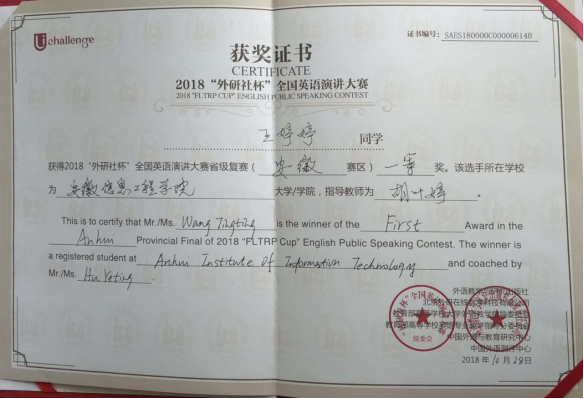 Uchallenge
证书编号：SAES180000C00000614B
获奖证书
CERTIFICATE
2018 “外研社杯”全国英语演讲大赛
2018 "FLTRP CUP" ENGLISH PUBLIC SPEAKING CONTEST
王婷婷 同学
获得2018 “外研社杯”全国英语演讲大赛省级复赛（ 安徽 赛区）一等 奖。该选手所在学校
为 安徽信息工程学院 大学/学院，指导教师为 胡叶婷 。
This is to certify that Mr./Ms. Wang Tingting is the winner of the First Award in the
Anhui Provincial Final of 2018 "FLTRP Cup" English Public Speaking Contest. The winner is
a registered student at Anhui Institute Of Information Technology and coached by
Mr./Ms. Hu Yeting
外语教学与研究出版社
北京外研在线数字科技有限公司
教育部高等学校大学外语教学指导委员会
教育部高等学校英语专业教学指导分委员会
中国外语与教育研究中心
中国外语测评中心
组委会
2018 年 10 月 28 日